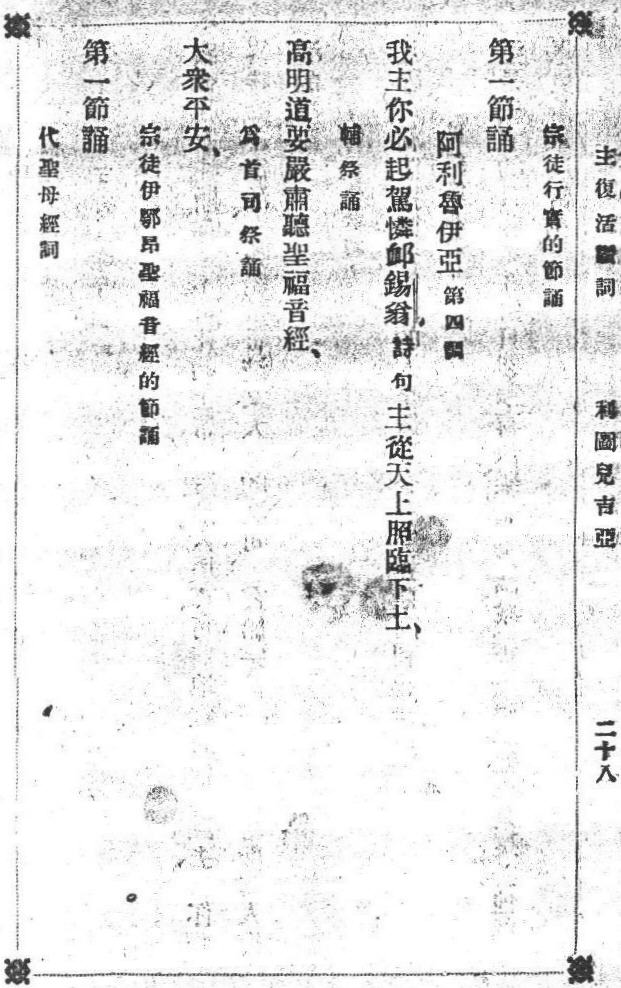 主復活讚詞 利圖兒吉亞 二十八
宗徒行實的節誦
第一節誦
阿利魯伊亞 第四調
我主你必起駕憐卹錫翁、詩句 主從天上照臨下土、
輔祭誦
高明道要嚴肅聽聖福音經、
爲首司祭誦
大衆平安、
宗徒伊鄂昂聖福音經的節誦
第一節誦
代聖母經詞